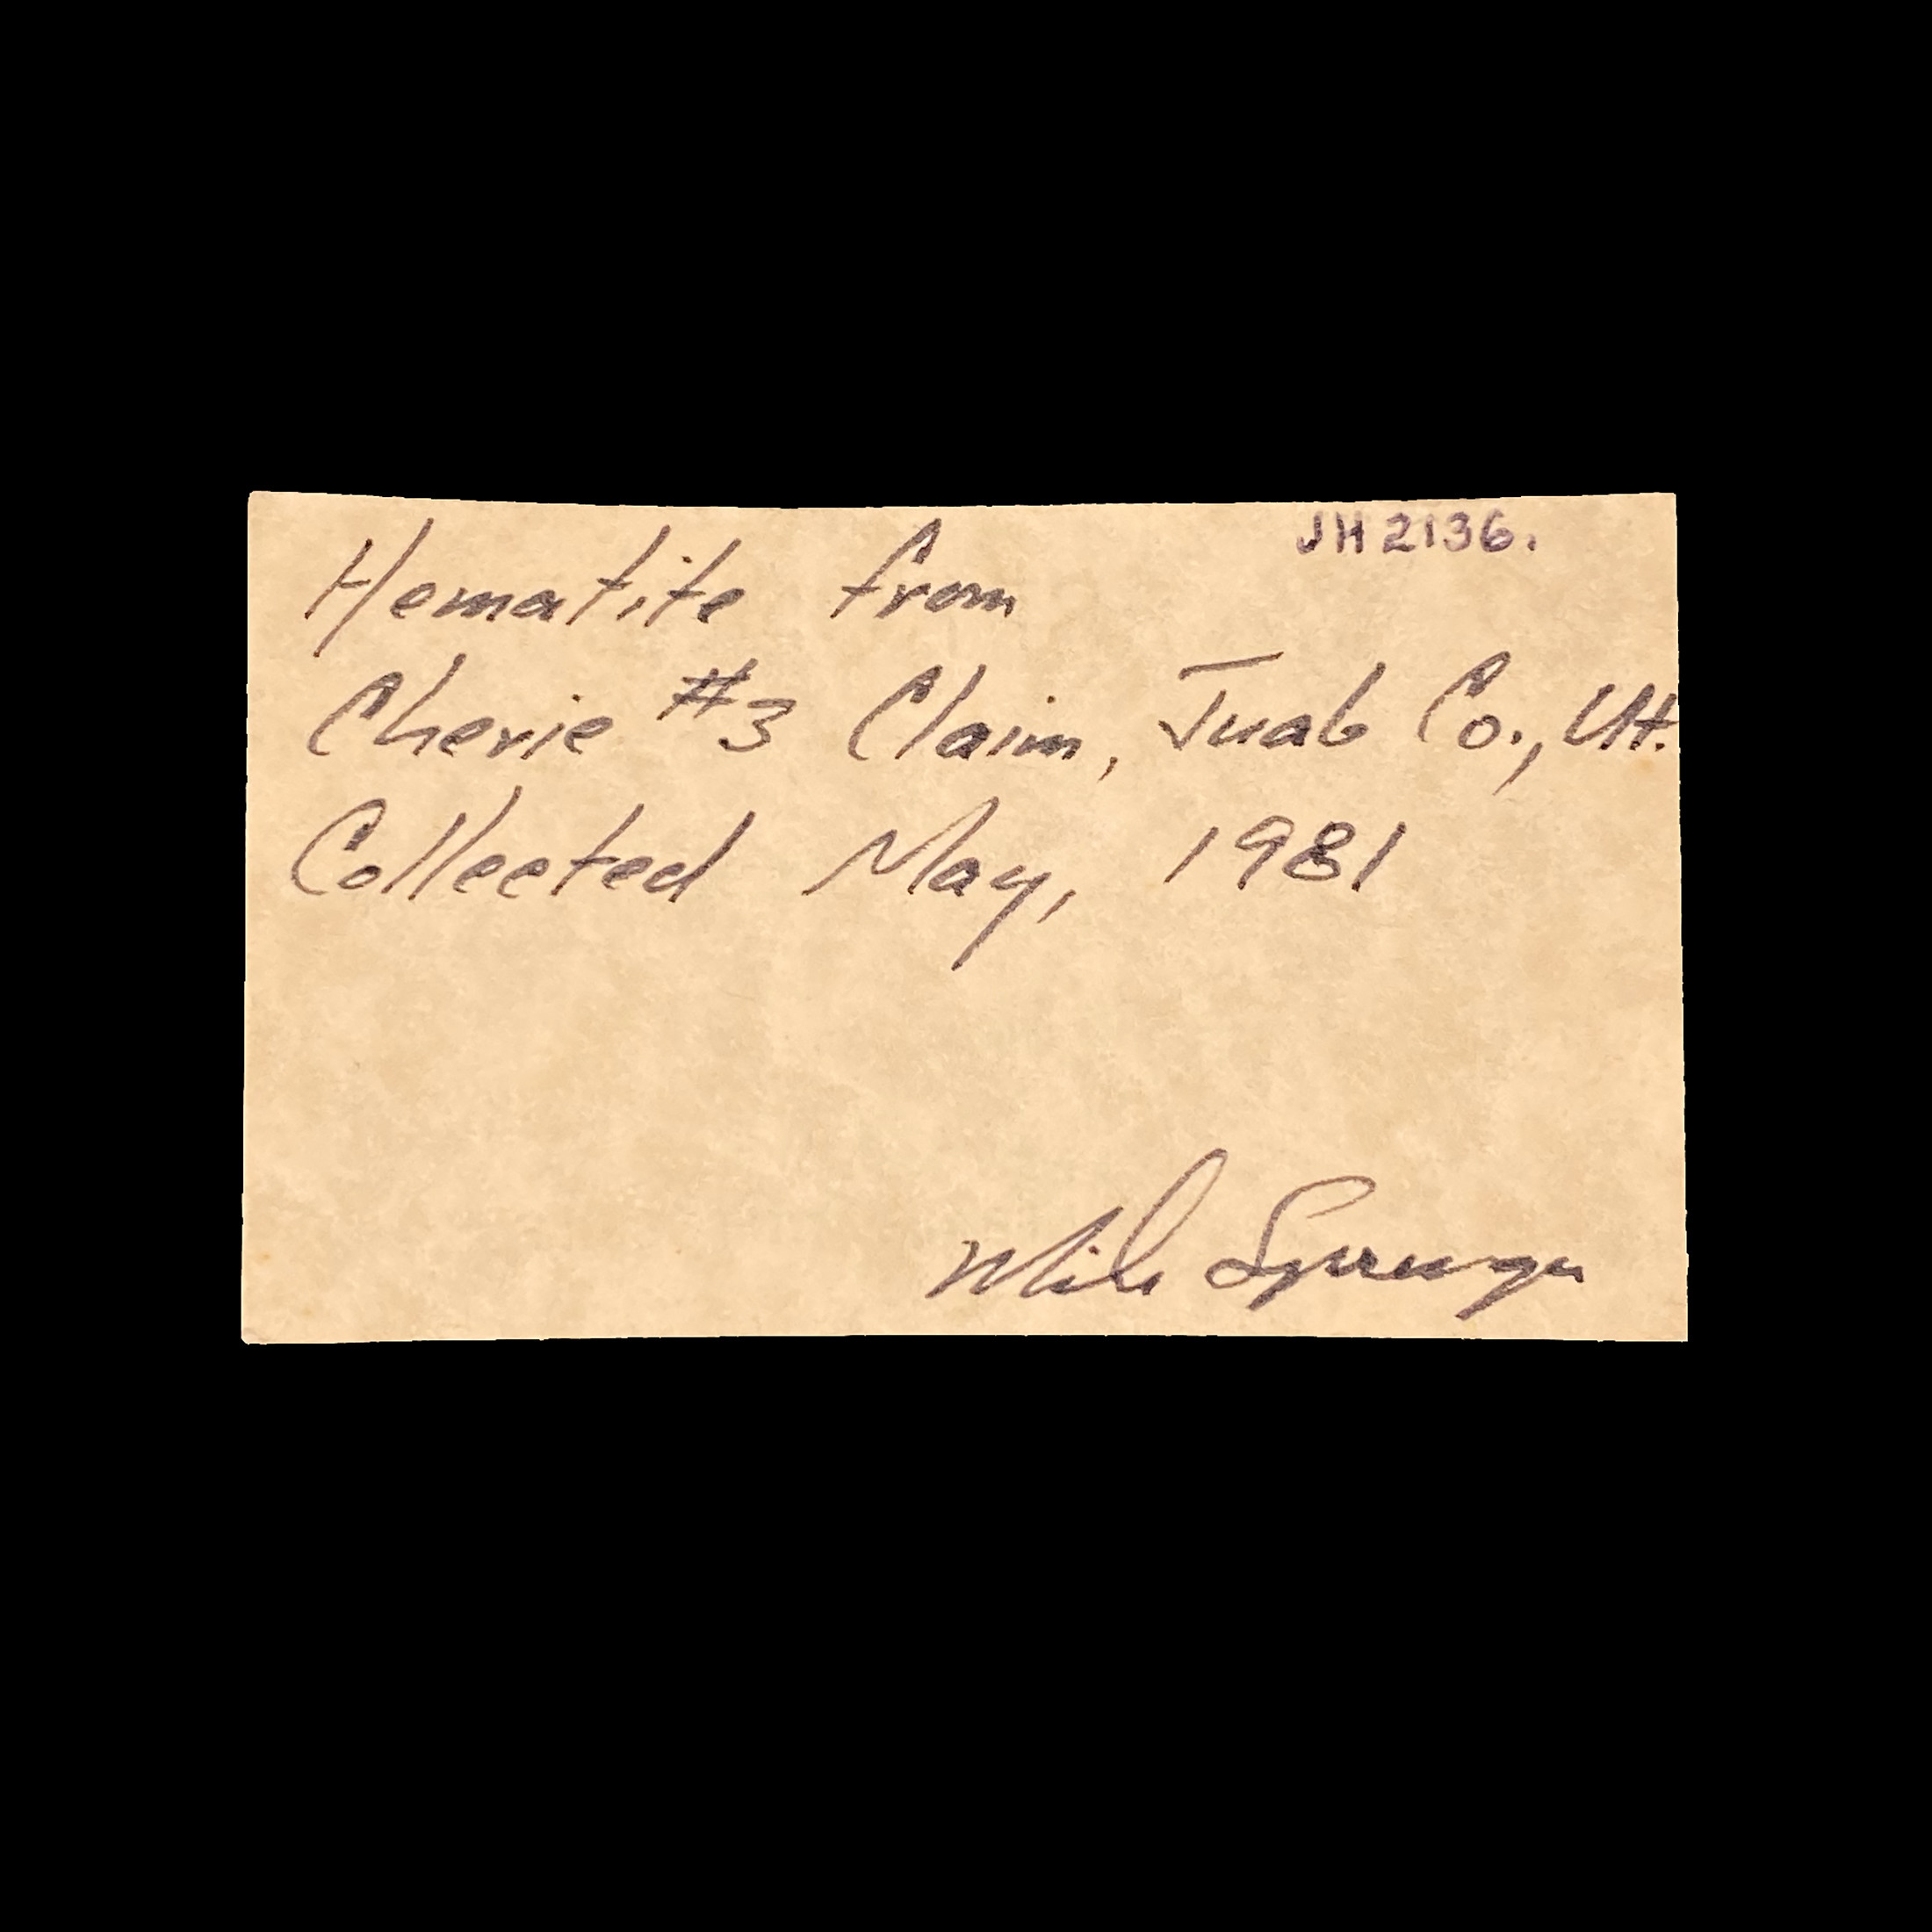 JH 2136.
Hematite from
Cherie #3 Claim, Juab Co., Ut.
Collected May, 1981
Mike